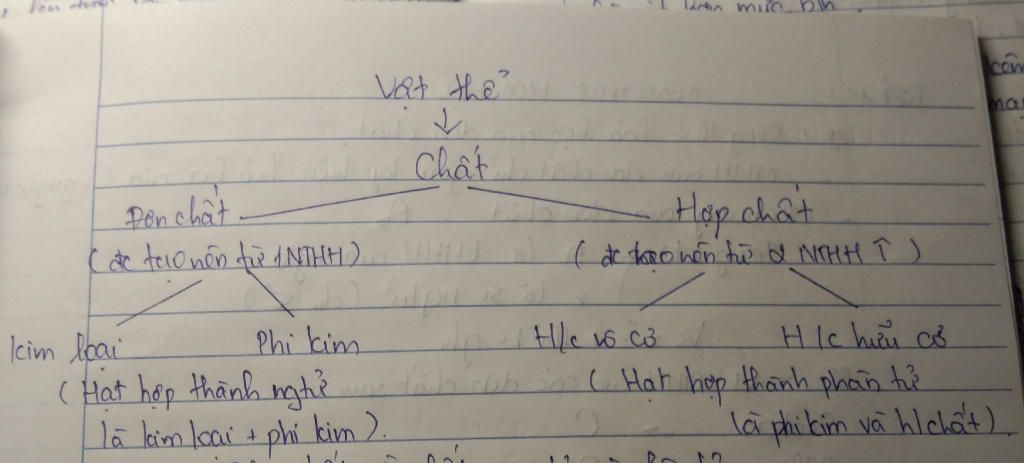 Vật thể
↓
Chất
Đơn chất Hợp chất
(đc tạo nên từ 1NTHH) (đc tạo nên từ 2 NTHH ↑)
kim loại Phi kim H/c vô cơ H/c hữu cơ
(Hạt hợp thành ngtử (Hạt hợp thành phân tử
là kim loại + phi kim). là phi kim và h/chất).